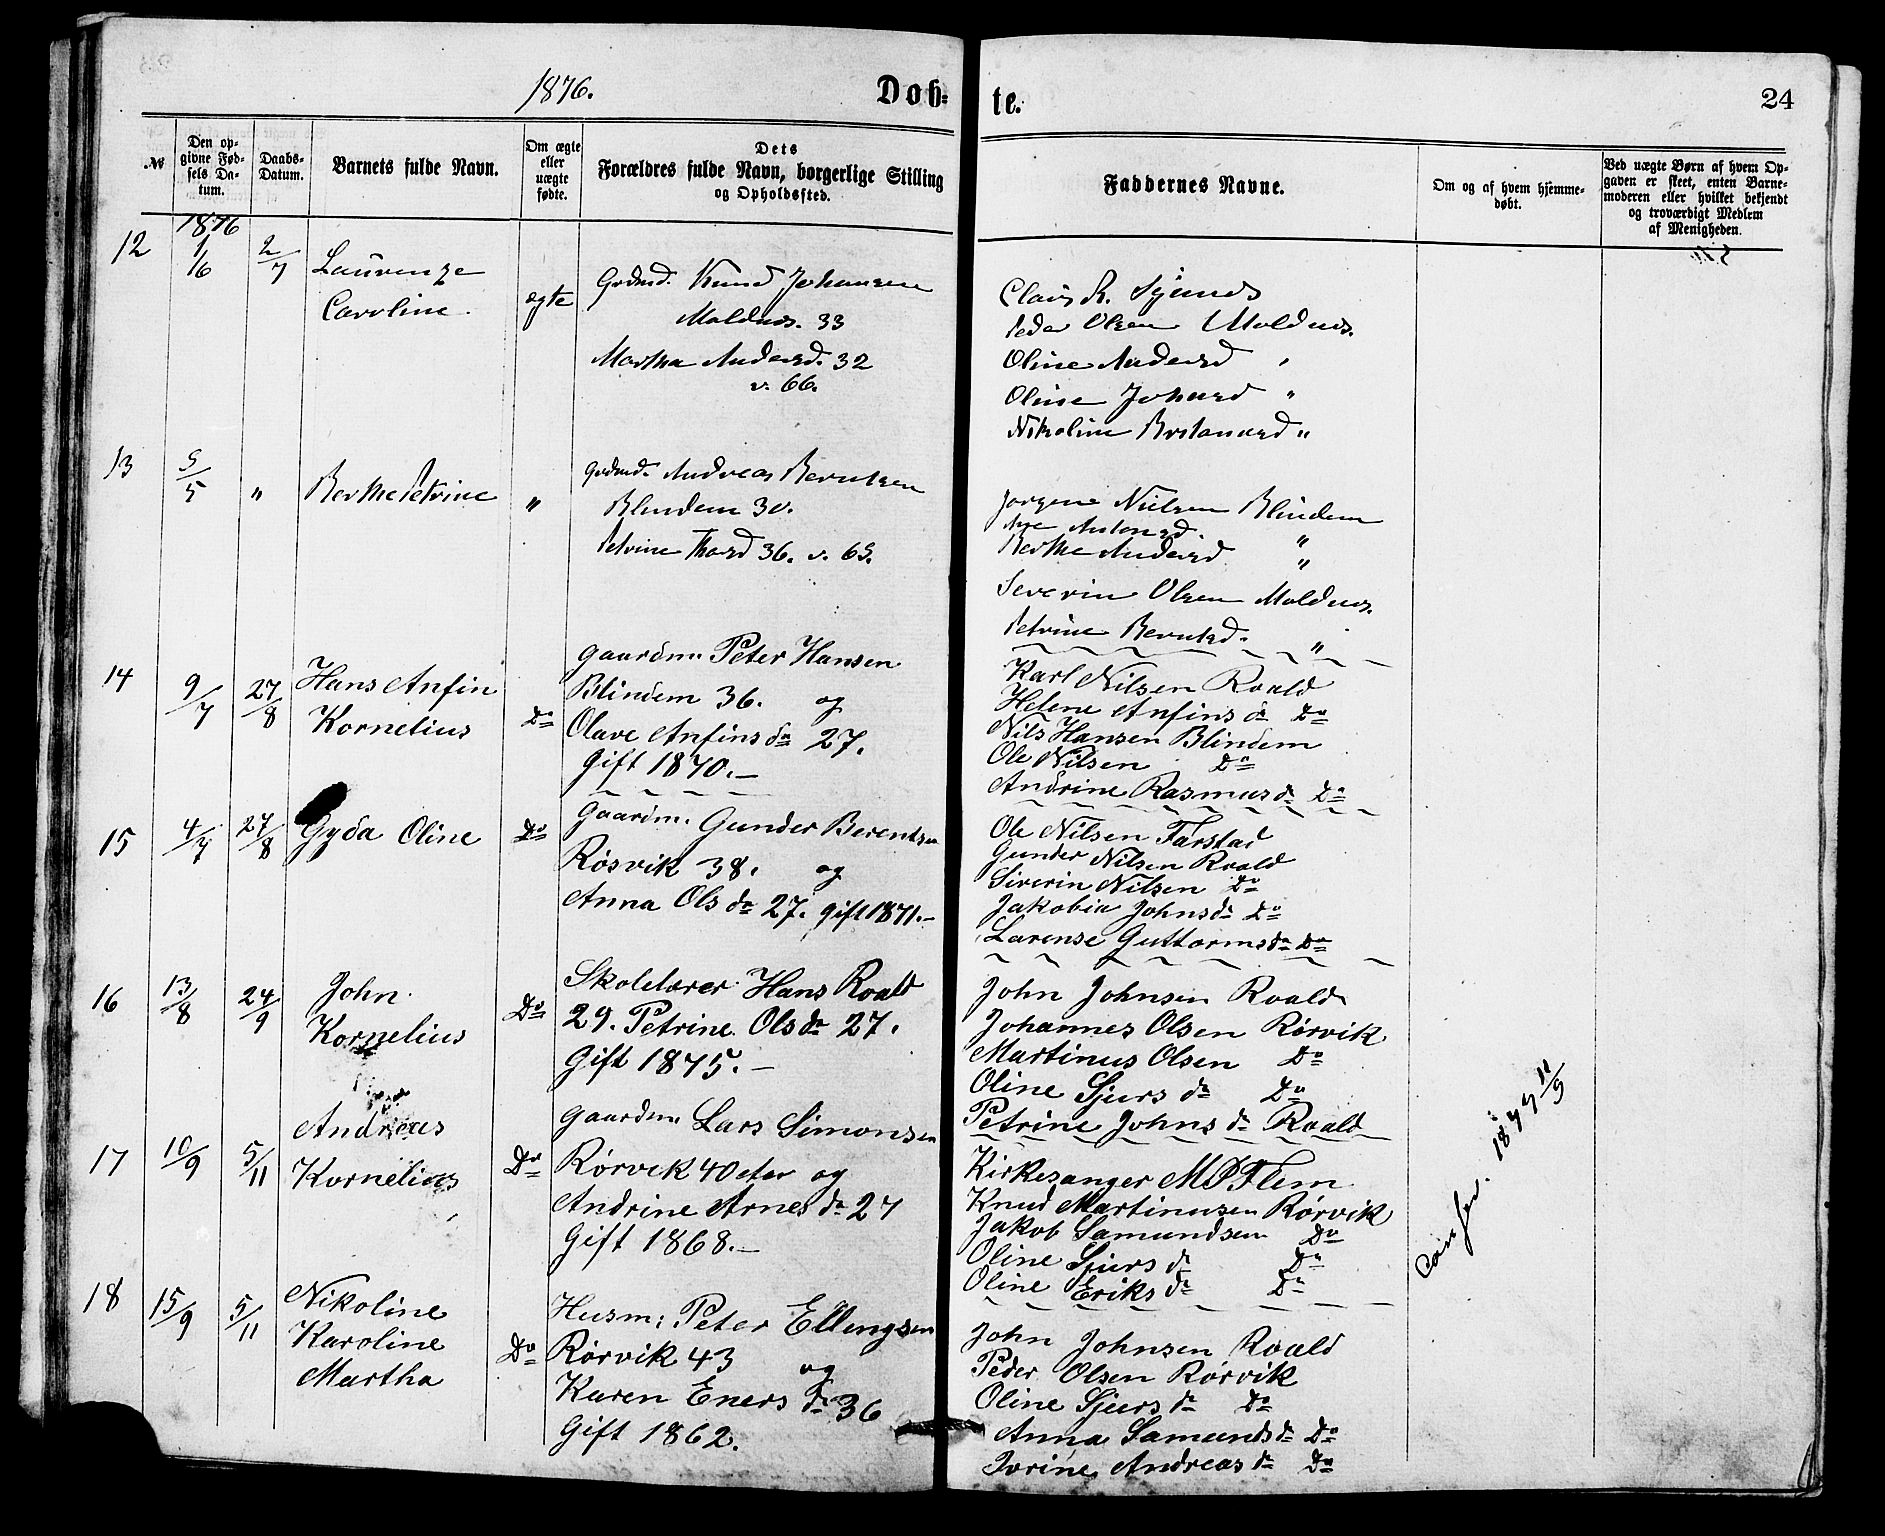 1876. Døb=
te. 24
№
Den op-
givne Fød-
sels Da-
tum.
Daabs-
Datum.
Barnets fulde Navn.
Om ægte
eller
uægte
fødte.
Dets
Forældres fulde Navn, borgerlige Stilling
og Opholdssted.
Faddernes Navne.
Om og af hvem hjemme-
døbt.
Ved uægte Børn af hvem Op-
gaven er skeet, enten Barne-
moderen eller hvilket bekjendt
og troværdigt Medlem
af Menigheden.
1876
12 1/6 2/7
Laurenze
Caroline.
ægte
Grdmd. Knud Johansen
Moldnæs. 33
Martha Andersd. 32
v. 66.
Peder Olsen Moldnæs.
Oline Andersd "
Oline Johnsd "
13 5/5 "
Berthe Petrine
"
Grdmd. Andreas Berntsen
Blindem 30.
Petrine Thorsd 36. v. 65.
Jørgen Nielsen Blindem
Ane Antonsd. "
Berthe Andersd "
Severin Olsen Moldnæs.
Petrine Berntsd. "
14 9/7 27/8
Hans Anfin
Kornelius
Do
Gaardm. Peter Hansen
Blindem 36. og
Olave Anfinsdr 27.
Gift 1870.—
Karl Nilsen Roald
Helene Anfinsdr Do
Nils Hansen Blindem
Ole Nilsen Do
Andrine Rasmusdr Do
15 4/7 27/8
Gyda Oline
Do
Gaardm. Gunder Berentsen
Røsvik 38. og
Anna Olsdr 27. gift 1871.—
Ole Nilsen Farstad
Gunder Nilsen Roald
Siverin Nilsen Do
Jakobia Johnsdr Do
Larense Guttormsdr Do
16 13/8 24/9
John
Kornelius
Do
Skolelærer Hans Roald
29. Petrine Olsdr 27.
Gift 1875.—
John Johnsen Roald
Johannes Olsen Rørvik
Martinus Olsen Do
Oline Sjursdr Do
Petrine Johnsdr Roald
17 10/9 5/11
Andreas
Kornelius
Do
Gaardm. Lars Simonsen
Rørvik 40 etar og
Andrine Arnesdr 27
Gift 1868.—
Kirkesanger M P Flem
Knud Martinusen Rørvik
Jakob Samundsen Do
Oline Sjursdr Do
Oline Eriksdr Do
1877 11/3
18 15/9 5/11
Nikoline
Karoline
Martha
Do
Husm: Peter Ellingsen
Rørvik 43 og
Karen Enersdr 36
Gift 1862.
John Johnsen Roald
Peder Olsen Rørvik
Oline Sjursdr Do
Anna Samundsdr Do
Jorine Andreasdr Do